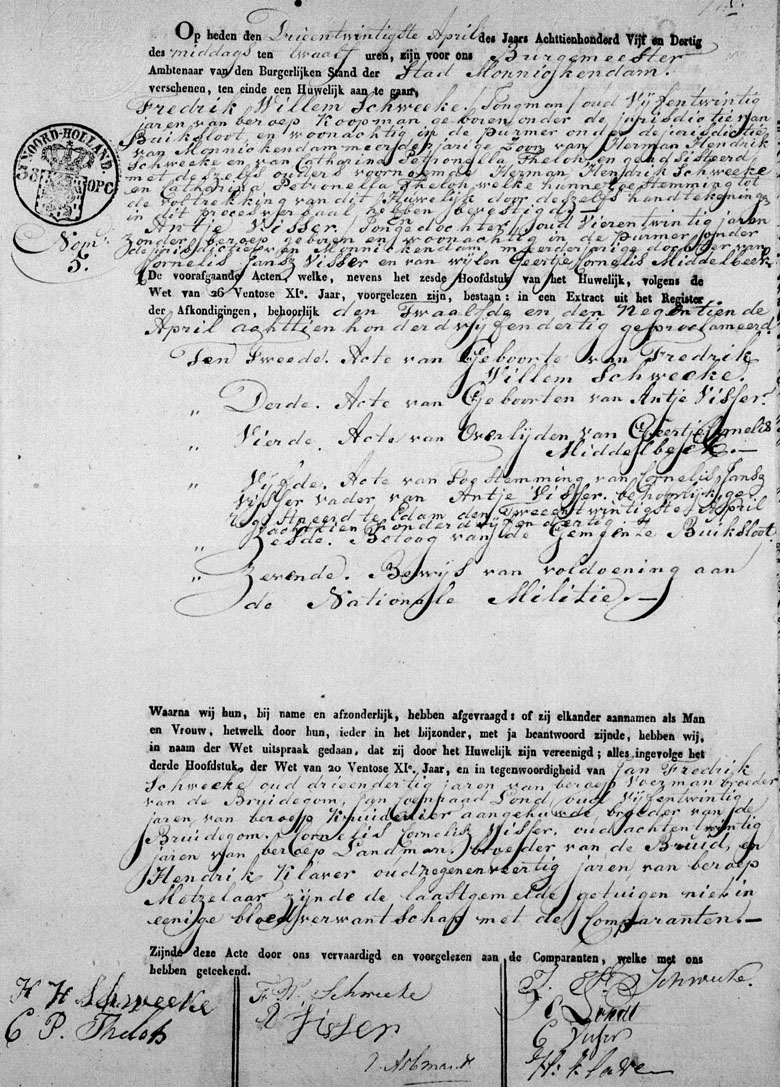 Op heden den Drieentwintigste April des Jaars Achttienhonderd Vijf en Dertig
des middags ten twaalf uren, zijn voor ons Burgemeester
Ambtenaar van den Burgerlijken Stand der Stad Monnickendam.
verschenen, ten einde een Huwelijk aan te gaan,
Fredrik Willem Schweeke, Jongman, oud Vijfentwintig
jaren van beroep Koopman geboren onder de jurisdictie van
Buiksloot, en woonachtig in de purmer onder de jurisdictie
van Monnickendam meerderjarige Zoon van Herman Hendrik
Schweeke en van Catharina Petronella Theloh, en geadsisteerd
met deszelfs ouders voornoemde Herman Hendrik Schweeke
en Catharina Petronella Theloh, welke hunne toestemming tot
de voltrekking van dit Huwelijk door deszelfs handtekening
in dit proces verbaal, hebben bevestigd.—
En
Antje Visser, Jongedochter, oud Vierentwintig jaren
zonder beroep geboren en woonachtig in de purmer onder
de jurisdictie van Monnickendam meerderjarige dochter van
Cornelis Jansz Visser en van wijlen Geertje Cornelis Middelbeek
NOORD-HOLLAND.
38 OPC
Nom:
5.
De voorafgaande Acten, welke, nevens het zesde Hoofdstuk van het Huwelijk, volgens de
Wet van 26 Ventose XIe. Jaar, voorgelezen zijn, bestaan: in een Extract uit het Register
der Afkondigingen, behoorlijk den Twaalfde en den Negentiende
April achttien honderd vijfendertig geproclameerd.
Ten Tweede. Acte van Geboorte van Fredrik
Willem Schweeke.
„ Derde. Acte van Geboorten van Antje Visser.
„ Vierde. Acte van Overlijden van Geertje Cornelis
Middelbeek.—
„ Vijfde. Acte van Toestemming van Cornelis Jansz
Visser vader van Antje Visser, behoorlijk ge-
registreerd te Edam den Tweeentwintigste April
achttien honderd vijfendertig.
„ Zesde. Betoog van de Gemeente Buiksloot
„ Zevende. Bewijs van voldoening aan
de Nationale Militie.—
Waarna wij hun, bij name en afzonderlijk, hebben afgevraagd: of zij elkander aannamen als Man
en Vrouw, hetwelk door hun, ieder in het bijzonder, met ja beantwoord zijnde, hebben wij,
in naam der Wet uitspraak gedaan, dat zij door het Huwelijk zijn vereenigd; alles ingevolge het
derde Hoofdstuk, der Wet van 20 Ventose XIe. Jaar, en in tegenwoordigheid van Jan Fredrik
Schweeke oud drieendertig jaren van beroep Voerman broeder
van de Bruidegom, Jan Coenraad Lond, oud Vijfentwintig
jaren van beroep Kruidenier aangehuwde broeder van de
Bruidegom, Cornelis Cornelisz Visser, oud achtentwintig
jaren van beroep Landman, broeder van de Bruid, en
Hendrik Klaver oud negenenveertig jaren van beroep
Metzelaar zijnde de laastgemelde getuigen niet in
eenige bloedverwantschap met de Comparanten.—
Zijnde deze Acte door ons vervaardigd en voorgelezen aan de Comparanten, welke met ons
hebben geteekend.
H H Schweeke
C P. Theloh
F. W. Schweeke
A Visser
J. F. Schweeke.
C Visser
H: Klaver